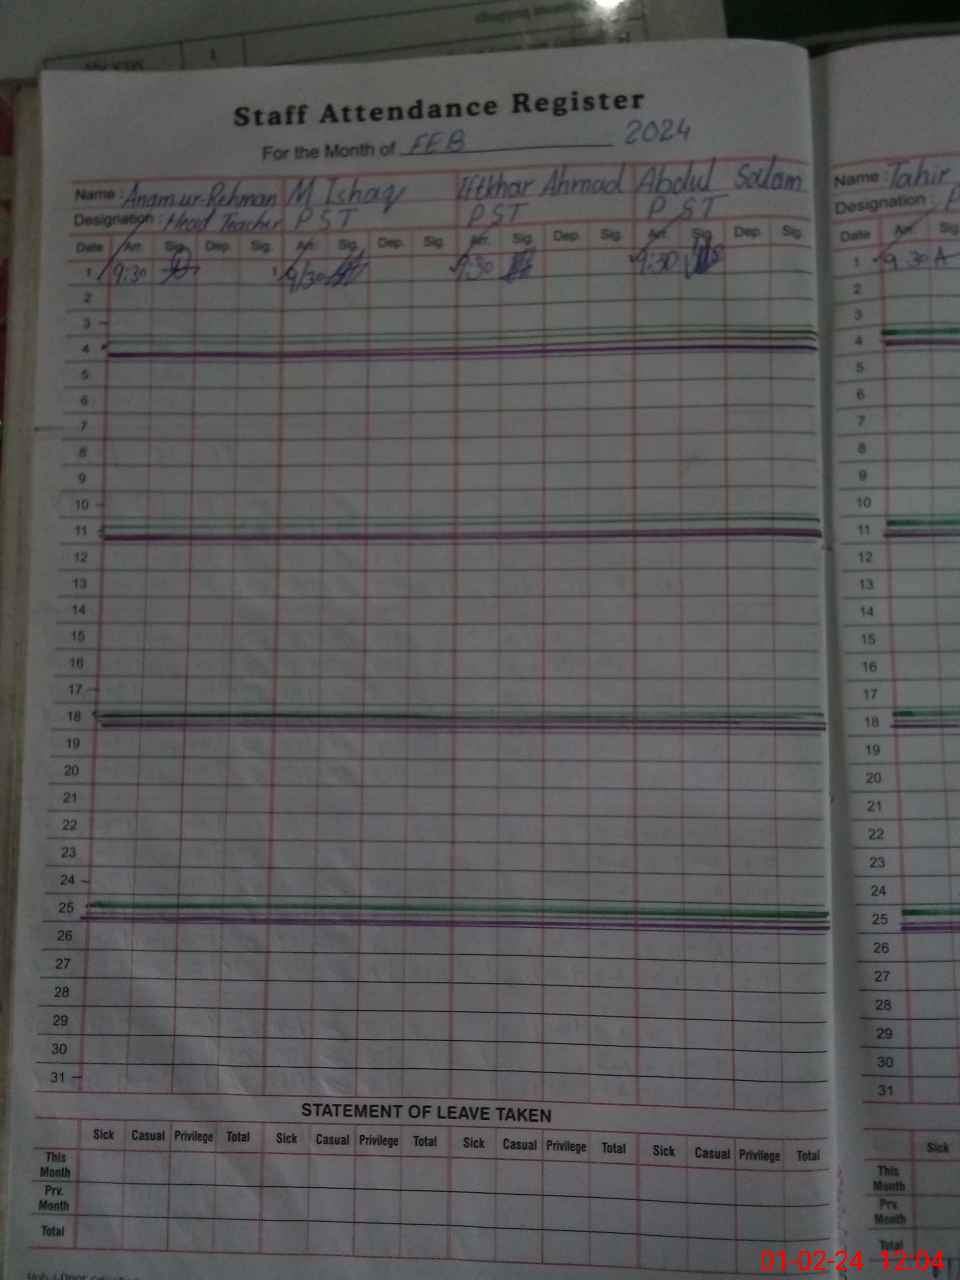 Staff Attendance Register
For the Month of FEB 2024
Name : Anamur-Rehman M Ishaq Iftkhar Ahmad Abdul Salam
Designation : Head Teacher PST PST PST
Date Arr. Sig. Dep. Sig. Arr. Sig. Dep. Sig. Arr. Sig. Dep. Sig. Arr. Sig. Dep. Sig.
1 9:30 9/30 9:30 9:30
2
3
4
5
6
7
8
9
10
11
12
13
14
15
16
17
18
19
20
21
22
23
24
25
26
27
28
29
30
31
STATEMENT OF LEAVE TAKEN
Sick Casual Privilege Total Sick Casual Privilege Total Sick Casual Privilege Total Sick Casual Privilege Total
This
Month
Prv.
Month
Total
Name : Tahir
Designation :
Date Arr. Sig
1 9:30 A
2
3
4
5
6
7
8
9
10
11
12
13
14
15
16
17
18
19
20
21
22
23
24
25
26
27
28
29
30
31
Sick
This
Month
Prv.
Month
Total
01-02-24 12:04